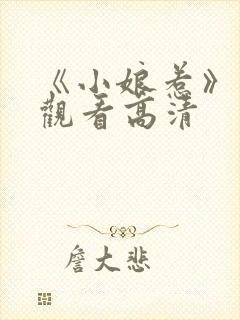 《小娘惹》
觀看高清
詹大悲